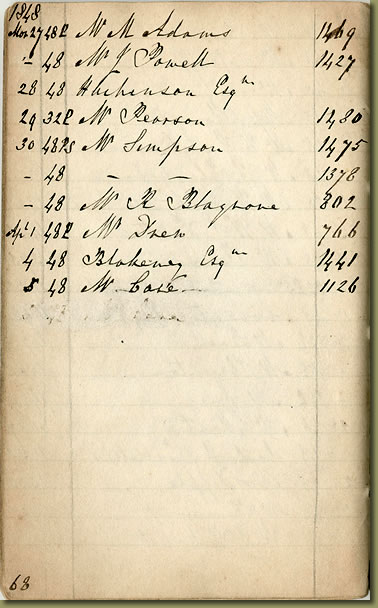 1848
Mar 27 48P Mr M Adams 1469
- 48 Mr J Powell 1427
28 48 Huchenson Esqre
29 32P Mr Pearson 1280
30 48Ps Mr Simpson 1475
- 48 - - 1378
- 48 Mr R Blagrove 802
Apl 1 48P Mr Drew 766
4 48 Blakeney Esqre 1441
5 48 Mr Case 1126
68